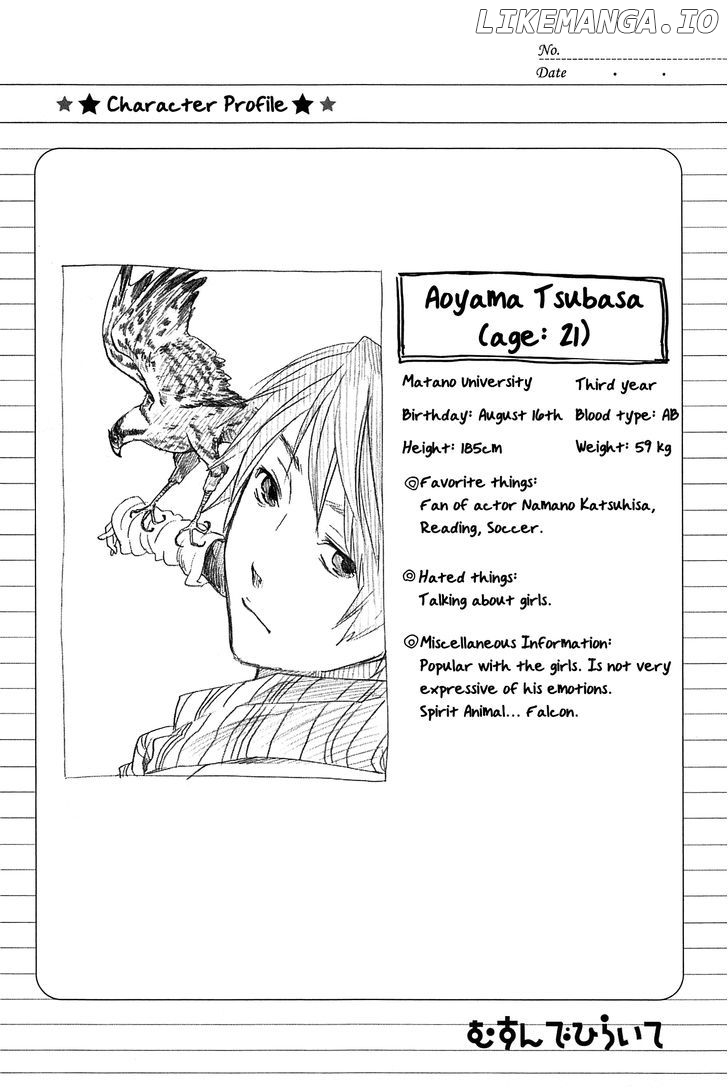 LIKEMANGA.IO
No.
Date
Character Profile
Aoyama Tsubasa
(age: 21)
Matano University Third year
Birthday: August 16th Blood type: AB
Height: 185cm Weight: 59 kg
◎Favorite things:
Fan of actor Namano Katsuhisa,
Reading, Soccer.
◎ Hated things:
Talking about girls.
◎Miscellaneous Information:
Popular with the girls. Is not very
expressive of his emotions.
Spirit Animal... Falcon.
むすんでひらいて